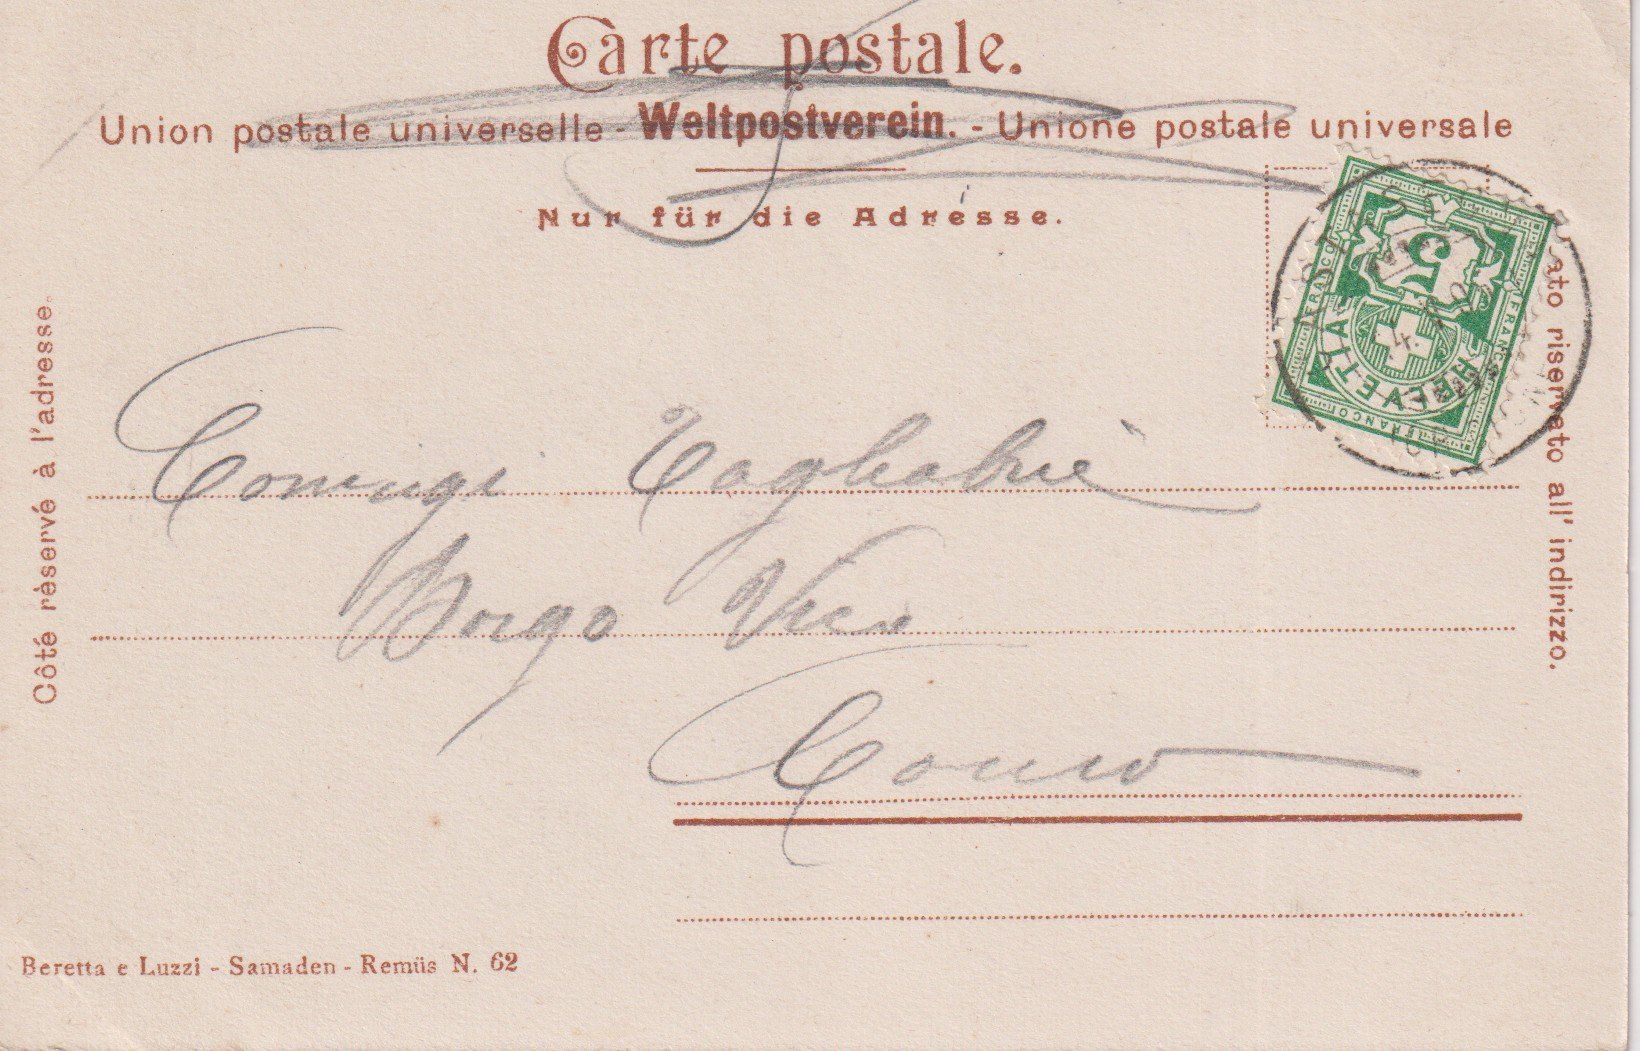 Carte postale.
Union postale universelle - Weltpostverein. - Unione postale universale
Nur für die Adresse.
Côté rèservé à l'adresse.
ato riservato all' indirizzo.
5
FRANCO
FRANCO
FRANCO
HELVETIA
Tagliabuè
Borgo Vico
Como
Beretta e Luzzi - Samaden - Remüs N. 62